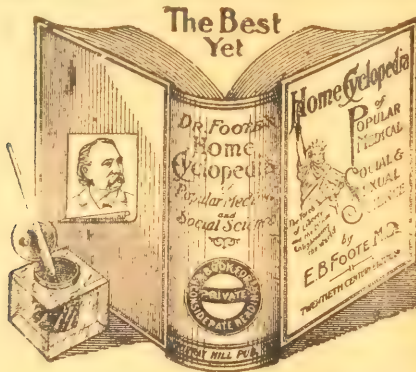 The Best
Yet
DR. FOOTE'S
Home
Cyclopedia
of
Popular Medical
and
Social Science
PRIVATE
HILL PUB.
Home Cyclopedia
of
POPULAR
MEDICAL
SOCIAL &
SEXUAL
SCIENCE
by
E.B FOOTE M.D.
TWENTIETH CENTURY EDITION